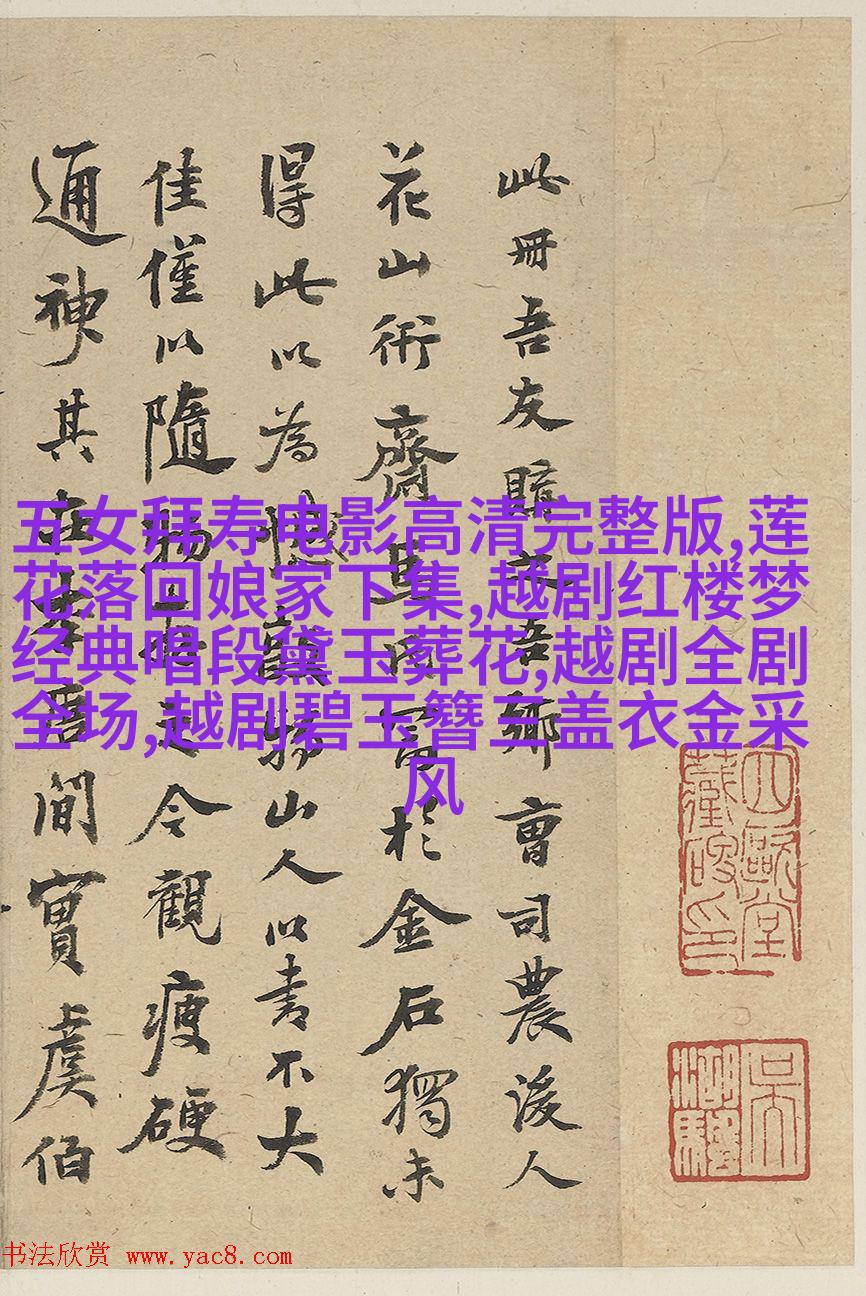 此冊吾友購之吾鄉曹司農後人
花山衎齋馬富於金石獨未
得此以為憾山人以書不大
佳僅以隨今觀瘦硬
通神其在間實虞伯
五女拜寿电影高清完整版,莲
花落回娘家下集,越剧红楼梦
经典唱段黛玉葬花,越剧全剧
全场,越剧碧玉簪三盖衣金采
风
四歐堂
藏碑印
吳
湖颿
书法欣赏 www.yac8.com